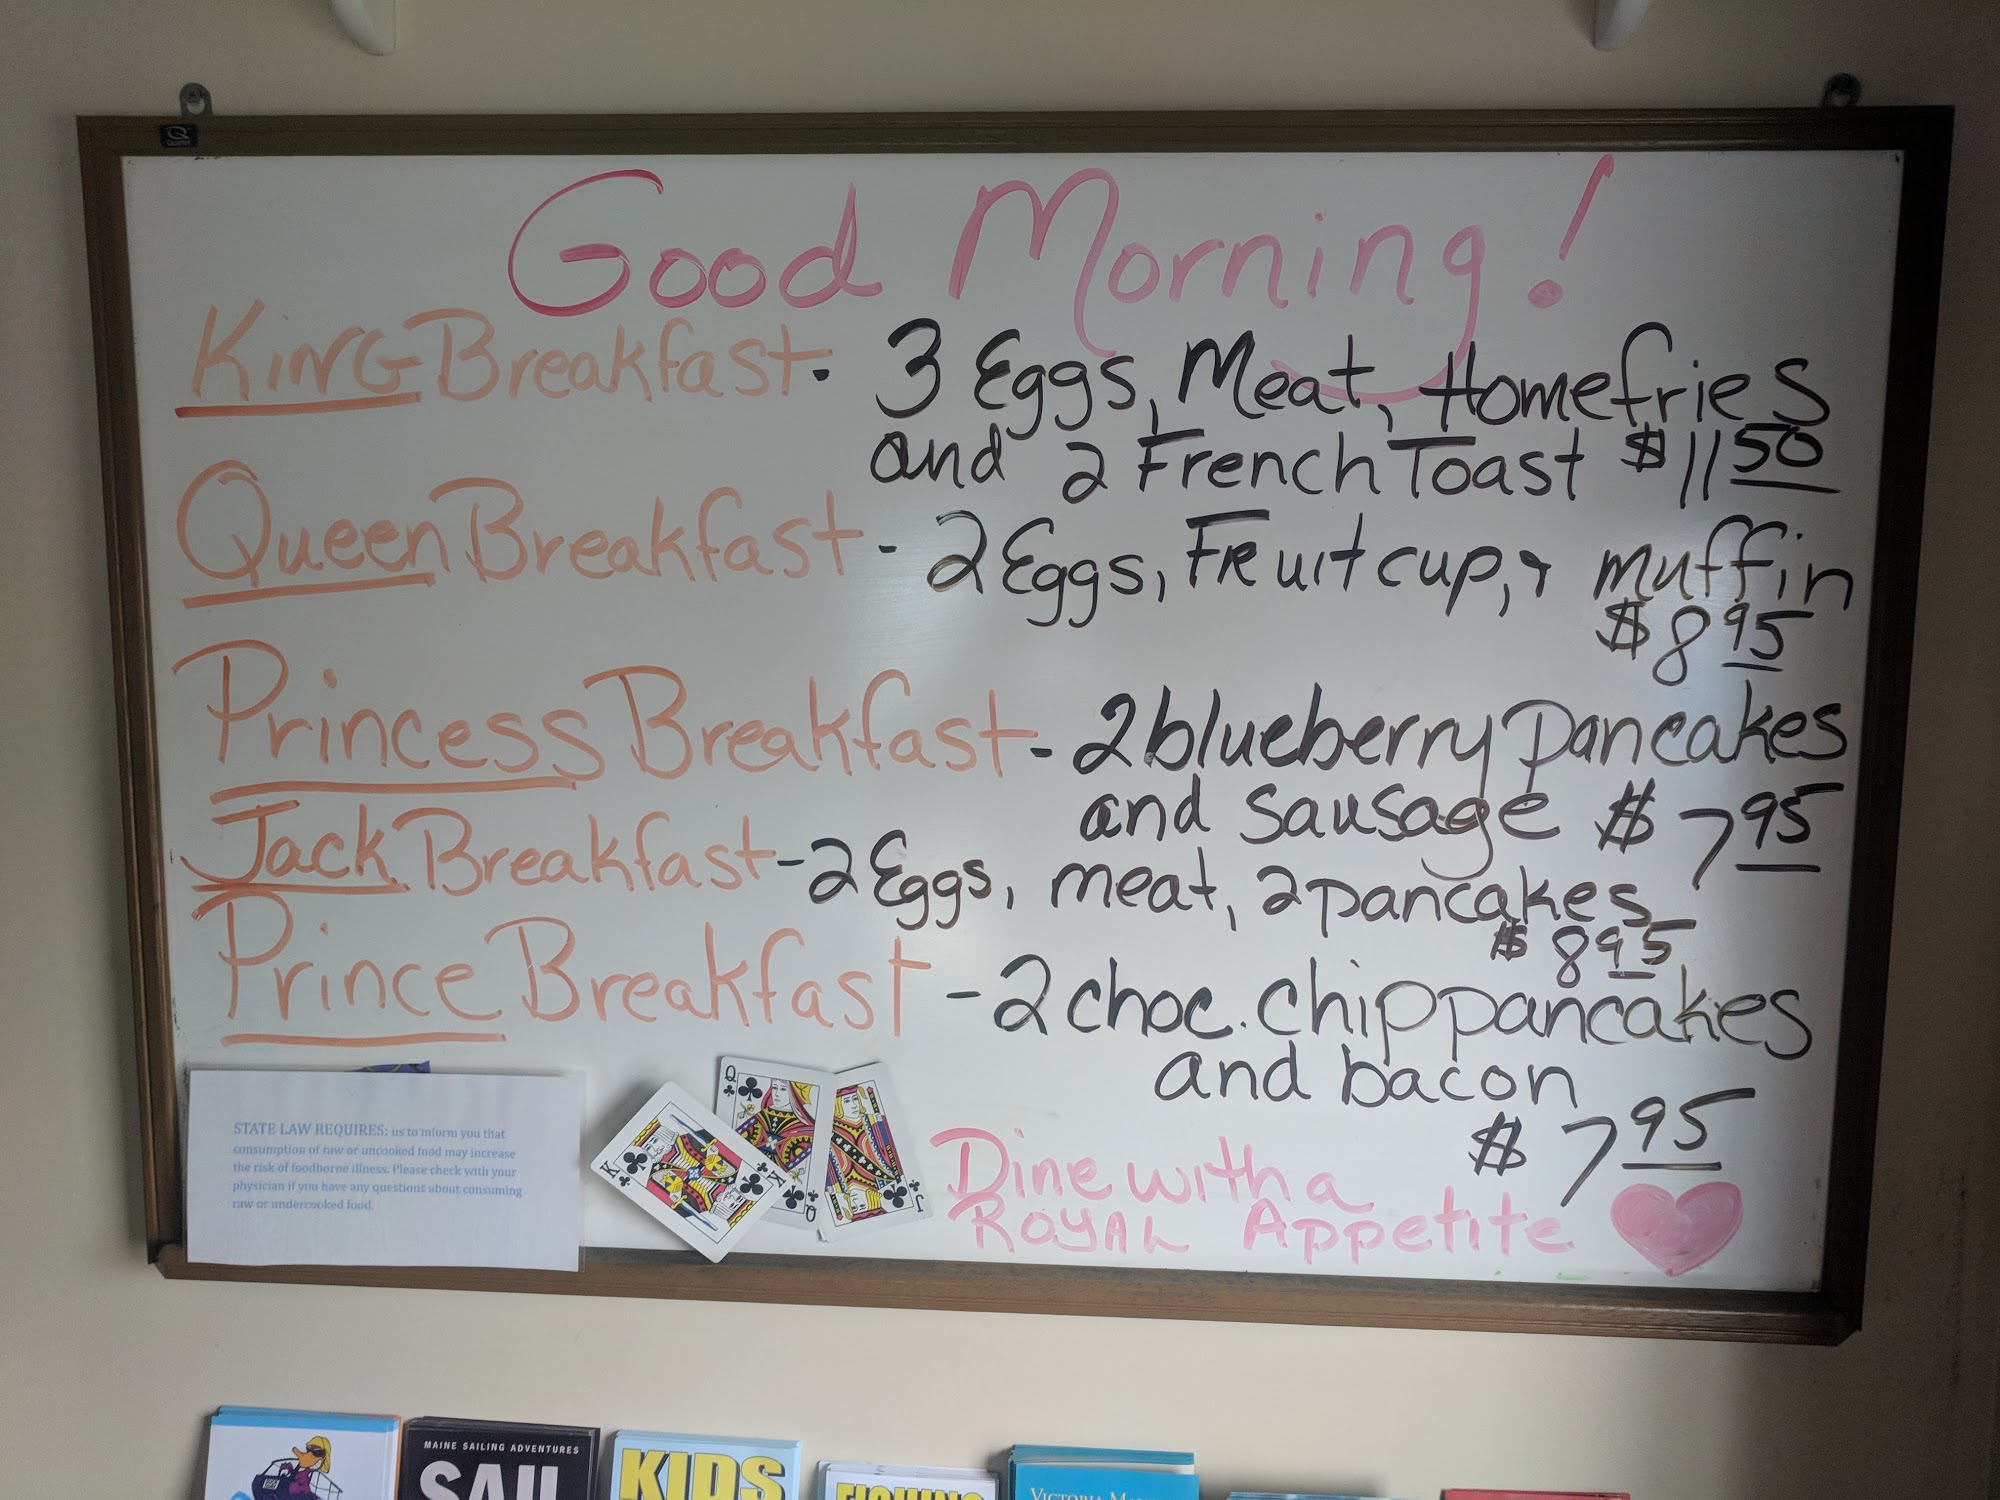 Quartet
Good Morning!
KiNG Breakfast - 3 Eggs, Meat, Homefries
and 2 French Toast $11 50
Queen Breakfast - 2 Eggs, FRuit cup, & muffin
$8 95
Princess Breakfast - 2 blueberry pancakes
and sausage $7 95
Jack Breakfast - 2 Eggs, meat, 2 pancakes
$8 95
Prince Breakfast - 2 choc. chip pancakes
and bacon
$7 95
Dine with a
ROYAL Appetite
STATE LAW REQUIRES: us to inform you that
consumption of raw or uncooked food may increase
the risk of foodborne illness. Please check with your
physician if you have any questions about consuming
raw or undercooked food.
K
K
Q
Q
J
MAINE SAILING ADVENTURES
SAIL
KIDS
FISHING
VICTORIA